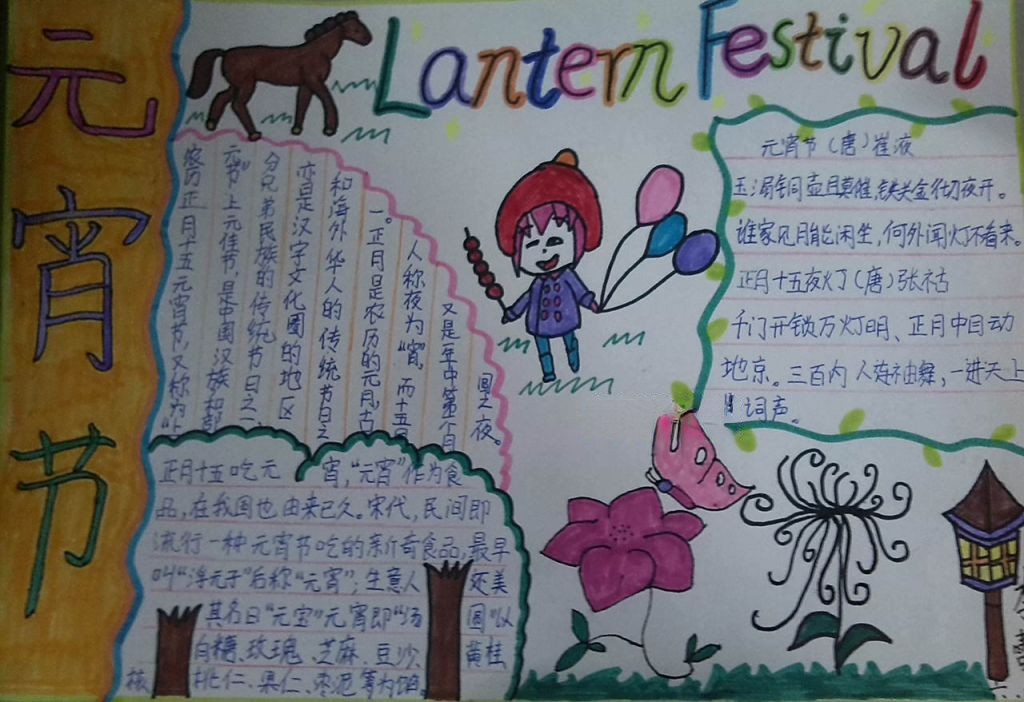 Lantern Festival
元宵节
农历正月十五元宵节,又称为“上
元节”上元佳节,是中国汉族和部
分兄弟民族的传统节日之一
亦是汉字文化圈的地区
和海外华人的传统节日之
一。正月是农历的元月,古
人称夜为“宵”,而十五
又是年中第一个月
圆之夜。
元宵节(唐)崔液
玉漏铜壶且莫催,铁关金彻夜开。
谁家见月能闲坐,何处闻灯不看来。
正月十五夜灯(唐)张祜
千门开锁万灯明、正月中旬动
地京。三百内人连袖舞,一进天上
词声。
正月十五吃元宵,“元宵”作为食
品,在我国也由来已久。宋代,民间即
流行一种元宵节吃的新奇食品,最早
叫“浮元子”后称“元宵”;生意人还美
其名曰“元宝”元宵即“汤圆”以
白糖、玫瑰、芝麻、豆沙、黄桂
核桃仁、果仁、枣泥等为馅。